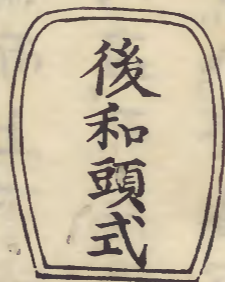 後和頭式